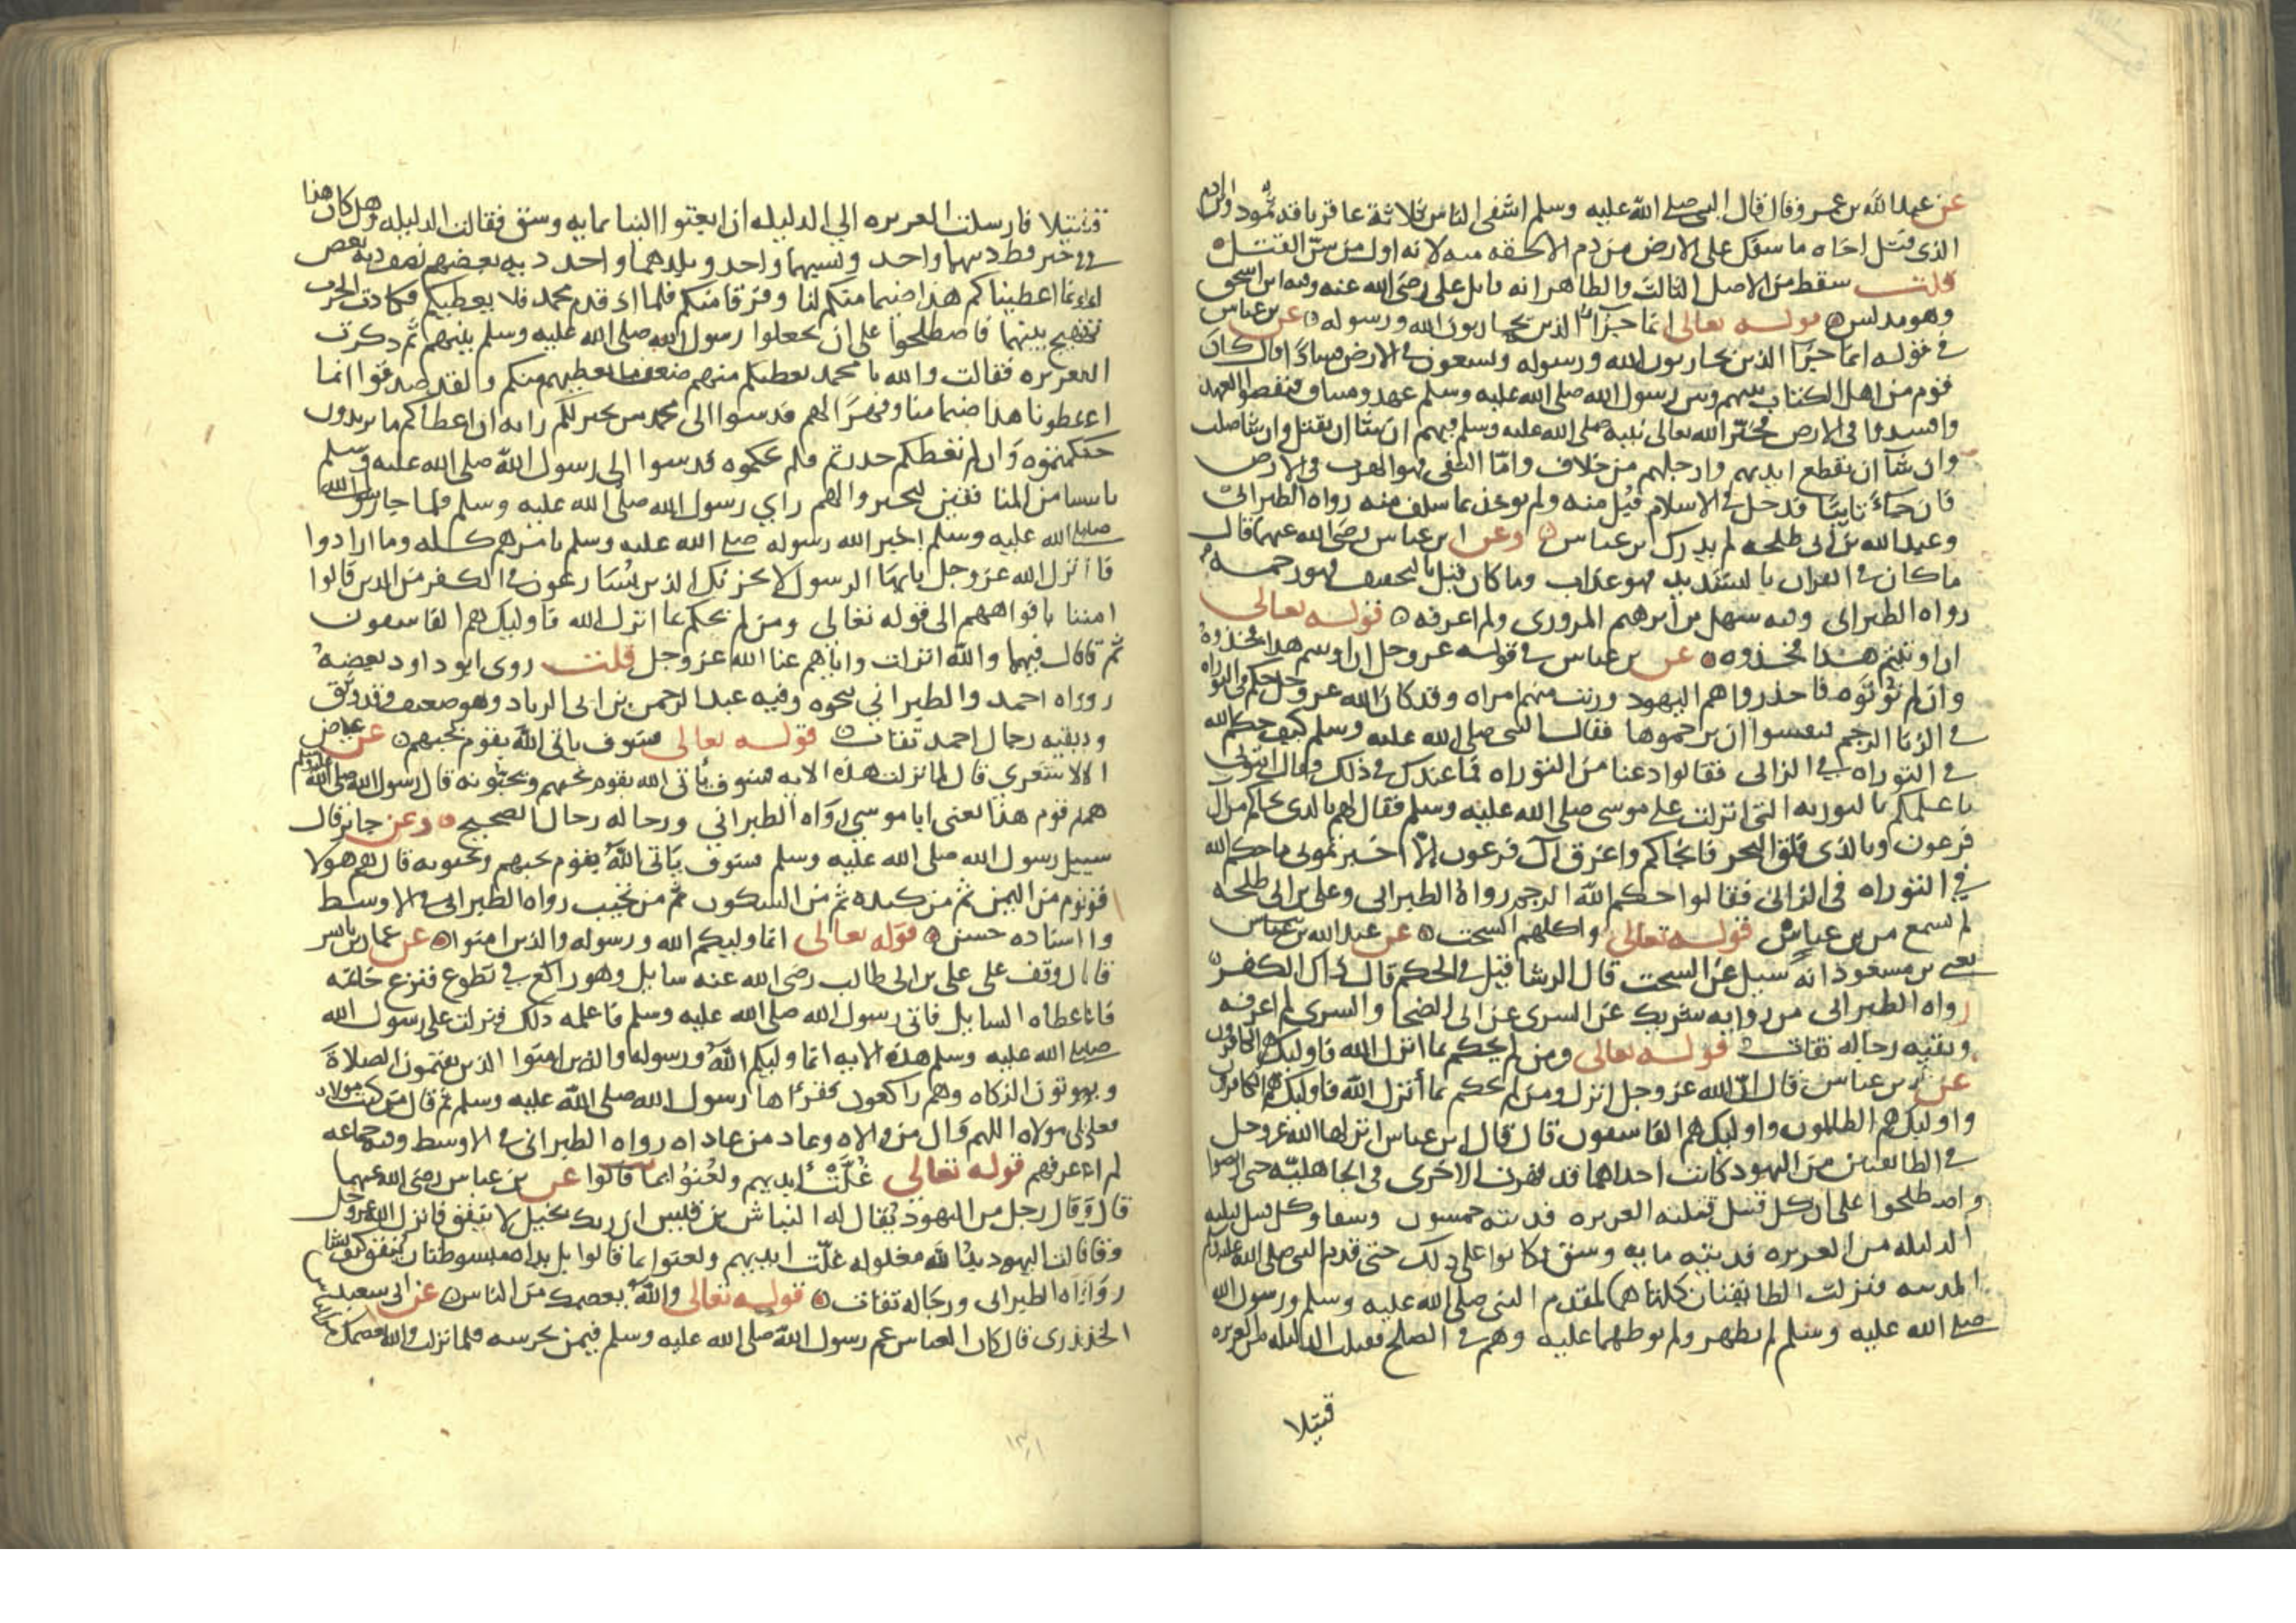 عن عبد الله بن عمرو قال قال النبي صلى الله عليه وسلم اشقى الناس ثلاثة عاقر ناقة ثمود وابن ادم
الذي قتل اخاه ما سفك على الارض من دم الا لحقه منه لانه اول من سن القتل
قلت سقط من الاصل الثالث والظاهر انه قاتل علي رضي الله عنه وفيه ابن اسحق
وهو مدلس قوله تعالى انما جزاء الذين يحاربون الله ورسوله عن بن عباس
في قوله انما جزا الذين يحاربون الله ورسوله ويسعون في الارض فسادا قال كان
قوم من اهل الكتاب بينهم وبين رسول الله صلى الله عليه وسلم عهد وميثاق فنقضوا العهد
وافسدوا في الارض فخير الله تعالى نبيه صلى الله عليه وسلم فيهم ان شا ان يقتل وان شا صلب
وان شا ان يقطع ايديهم وارجلهم من خلاف واما النفي فهو الهرب في الارض
فان جاء تايبا فدخل في الاسلام قبل منه ولم يوخذ بما سلف منه رواه الطبراني
وعبد الله بن ابي طلحه لم يدرك بن عباس وعن ابن عباس رضي الله عنهما قال
ما كان في القران يا لتشديد فهو عذاب وما كان قيل بالتخفيف فهو رحمة
رواه الطبراني وفيه سهل بن ابرهيم المروزي ولم اعرفه قوله تعالى
ان اوتيتم هذا فخذوه عن بن عباس في قوله عز وجل ان اوتيتم هذا فخذوه
وان لم تؤتوه فاحذروا هم اليهود وزنت منهم امراه وقد كان الله عز وجل حكم في التوراه
في الزنا الرجم فنفسوا ان يرجموها فقال النبي صلى الله عليه وسلم كيف حكم الله
في التوراه في الزاني فقالوا دعنا من التوراه فما عندك في ذلك فقال ائتوني
باعلمكم بالتوريه التي انزلت على موسى صلى الله عليه وسلم فقال لهم بالذي نجاكم من ال
فرعون وبالذي فلق البحر فانجاكم واغرق آل فرعون الا اخبرتموني ما حكم الله
في التوراه في الزاني فقالوا حكم الله الرجم رواه الطبراني وعلي بن ابي طلحه
لم يسمع من بن عباس قوله تعالى واكلهم السحت عن عبد الله بن عباس
يعني بن مسعود انه سيل عن السحت قال الرشا قيل في الحكم قال ذاك الكفر
رواه الطبراني من روايه شريك عن السري عن ابي الضحا والسري لم اعرفه
وبقيه رجاله ثقات قوله تعالى ومن لم يحكم بما انزل الله فاوليك هم الكافرون
عن بن عباس قال ان الله عز وجل انزل ومن لم يحكم بما أنزل الله فاوليك هم الكافرون
واوليك هم الظالمون واوليك هم الفاسقون قال قال ابن عباس انزلها الله عز وجل
في الطايفتين من اليهود كانت احداهما قد قهرت الاخرى في الجاهليه حتى ارتضوا
واصطلحوا على ان كل قتيل قتلته العزيزه فديته خمسون وسقا وكل قتيل قتلته
الذليله من العزيزه فديته مايه وسق فكانوا على ذلك حتى قدم النبي صلى الله عليه وسلم
المدينه فنزلت الطايفتان كلتاهما لمقدم النبي صلى الله عليه وسلم ورسول الله
صلى الله عليه وسلم لم يظهر ولم يوطهما عليه وهم في الصلح فقتلت الذليله من العزيزه
قتيلا
قتيلا فارسلت العزيزه الى الذليله ان ابعثوا الينا بمايه وسق فقالت الذليله وهل كان هذا
في خير قط دينهما واحد ونسبهما واحد وبلدهما واحد ديه بعضهم نصف ديه بعض
انما اعطيناكم هذا ضيما منكم لنا وفرقا منكم فلما اذ قدم محمد فلا نعطيكم فكادت الحرب
تهيج بينهما فاصطلحوا على ان يجعلوا رسول الله صلى الله عليه وسلم بينهم ثم ذكرت
العزيزه فقالت والله ما محمد يعطيكم منهم ضعف ما يعطيهم منكم ولقد صدقوا انما
اعطونا هذا ضيما منا وقهرا لهم فدسوا الى محمد من يخبر لكم رايه ان اعطاكم ما تريدون
حكمتموه وان لم يعطكم حذرتم فلم تحكموه فدسوا الى رسول الله صلى الله عليه وسلم
ناسا من المنافقين ليخبروا لهم راي رسول الله صلى الله عليه وسلم فلما جا رسول الله
صلى الله عليه وسلم اخبر الله رسوله صلى الله عليه وسلم بامرهم كله وما ارادوا
فانزل الله عز وجل يايها الرسول لا يحزنك الذين يسارعون في الكفر من الذين قالوا
امنا بافواههم الى قوله تعالى ومن لم يحكم بما انزل الله فاوليك هم الفاسقون
ثم قال فيهما والله انزلت واياهم عنا الله عز وجل قلت روى ابو داود بعضه
رواه احمد والطبراني بنحوه وفيه عبد الرحمن بن ابي الزناد وهو ضعيف وقد وثق
وبقيه رجال احمد ثقات قوله تعالى فسوف ياتي الله بقوم يحبهم عن عياض
الاشعري قال لما نزلت هذه الايه فسوف يأتي الله بقوم يحبهم ويحبونه قال رسول الله صلى الله عليه وسلم
هم قوم هذا يعني ابا موسي رواه الطبراني ورجاله رجال الصحيح وعن جابر قال
سيل رسول الله صلى الله عليه وسلم فسوف ياتي الله بقوم يحبهم ويحبونه قال هم هولا
قوم من اليمن ثم من كنده ثم من السكون ثم من تجيب رواه الطبراني في الاوسط
واسناده حسن قوله تعالى انما وليكم الله ورسوله والذين امنوا عن عمار بن ياسر
قال وقف على علي بن ابي طالب رضي الله عنه سايل وهو راكع في تطوع فنزع خاتمه
فاعطاه السايل فاتى رسول الله صلى الله عليه وسلم فاعلمه ذلك فنزلت على رسول الله
صلى الله عليه وسلم هذه الايه انما وليكم الله ورسوله والذين امنوا الذين يقيمون الصلاة
ويوتون الزكاه وهم راكعون فقرأها رسول الله صلى الله عليه وسلم ثم قال من كنت مولاه
فعلي مولاه اللهم وال من والاه وعاد من عاداه رواه الطبراني في الاوسط وفيه جماعه
لم اعرفهم قوله تعالى غلت ايديهم ولعنوا بما قالوا عن بن عباس رضي الله عنهما
قال قال رجل من اليهود يقال له النباش بن قيس ان ربك بخيل لا ينفق فانزل الله عز وجل
وقالت اليهود يد الله مغلوله غلت ايديهم ولعنوا بما قالوا بل يداه مبسوطتان ينفق كيف يشا
رواه الطبراني ورجاله ثقات قوله تعالى والله يعصمك من الناس عن ابي سعيد
الخدري قال كان العباس عم رسول الله صلى الله عليه وسلم فيمن يحرسه فلما نزلت والله يعصمك